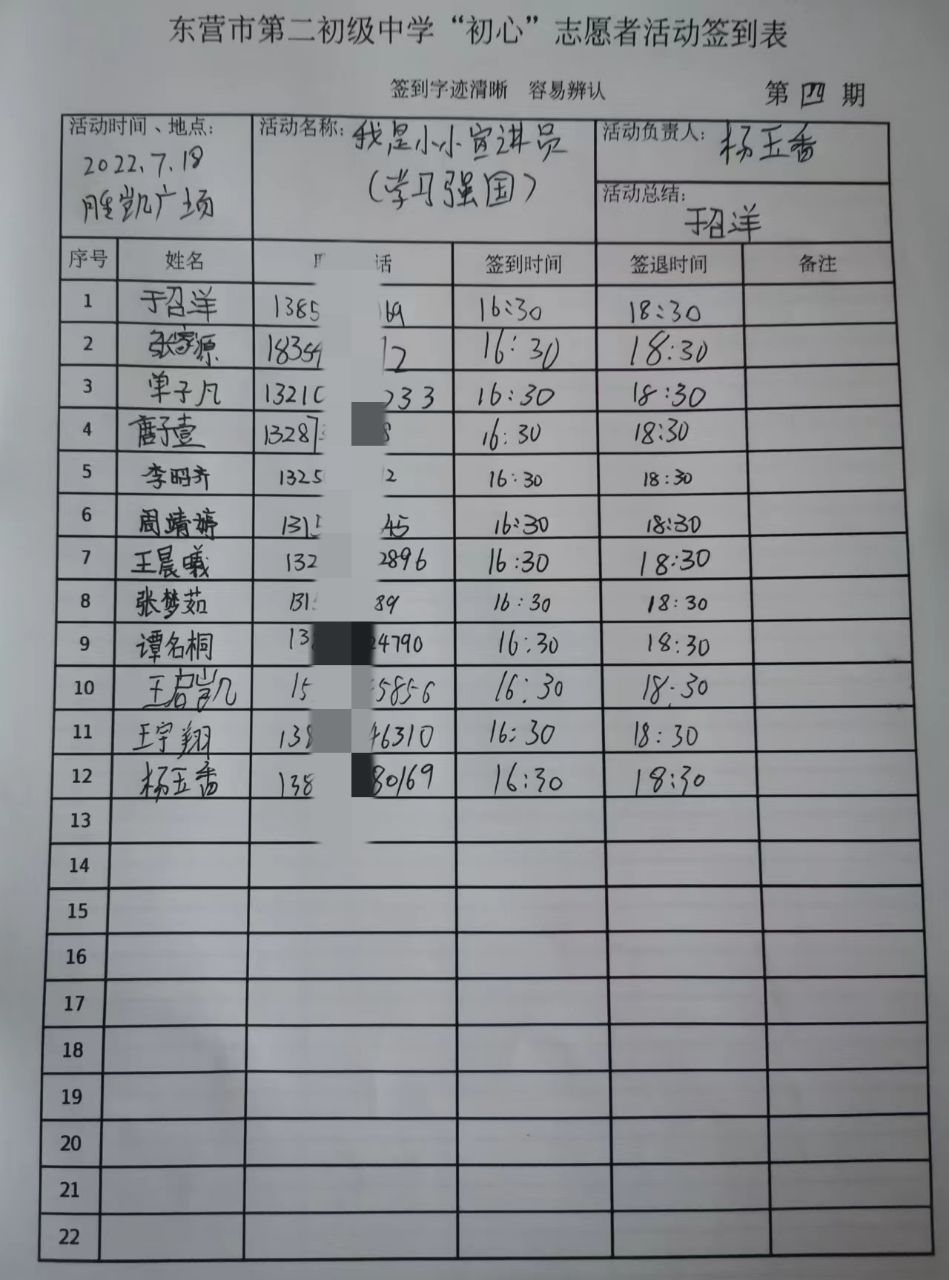 东营市第二初级中学“初心”志愿者活动签到表
签到字迹清晰 容易辨认 第四期
活动时间、地点: 2022.7.18 胜凯广场
活动名称: 我是小小宣讲员 (学习强国)
活动负责人: 杨玉香
活动总结: 于召洋
序号 姓名 话 签到时间 签退时间 备注
1 于召洋 1385 169 16:30 18:30
2 张家源 18354 12 16:30 18:30
3 单子凡 1321 233 16:30 18:30
4 唐子壹 1328 8 16:30 18:30
5 李昭齐 1325 2 16:30 18:30
6 周靖婷 131 45 16:30 18:30
7 王晨曦 132 2896 16:30 18:30
8 张梦茹 131 89 16:30 18:30
9 谭名桐 13 4790 16:30 18:30
10 王启凯 15 5856 16:30 18:30
11 王宇翔 138 46310 16:30 18:30
12 杨玉香 138 80169 16:30 18:30
13
14
15
16
17
18
19
20
21
22